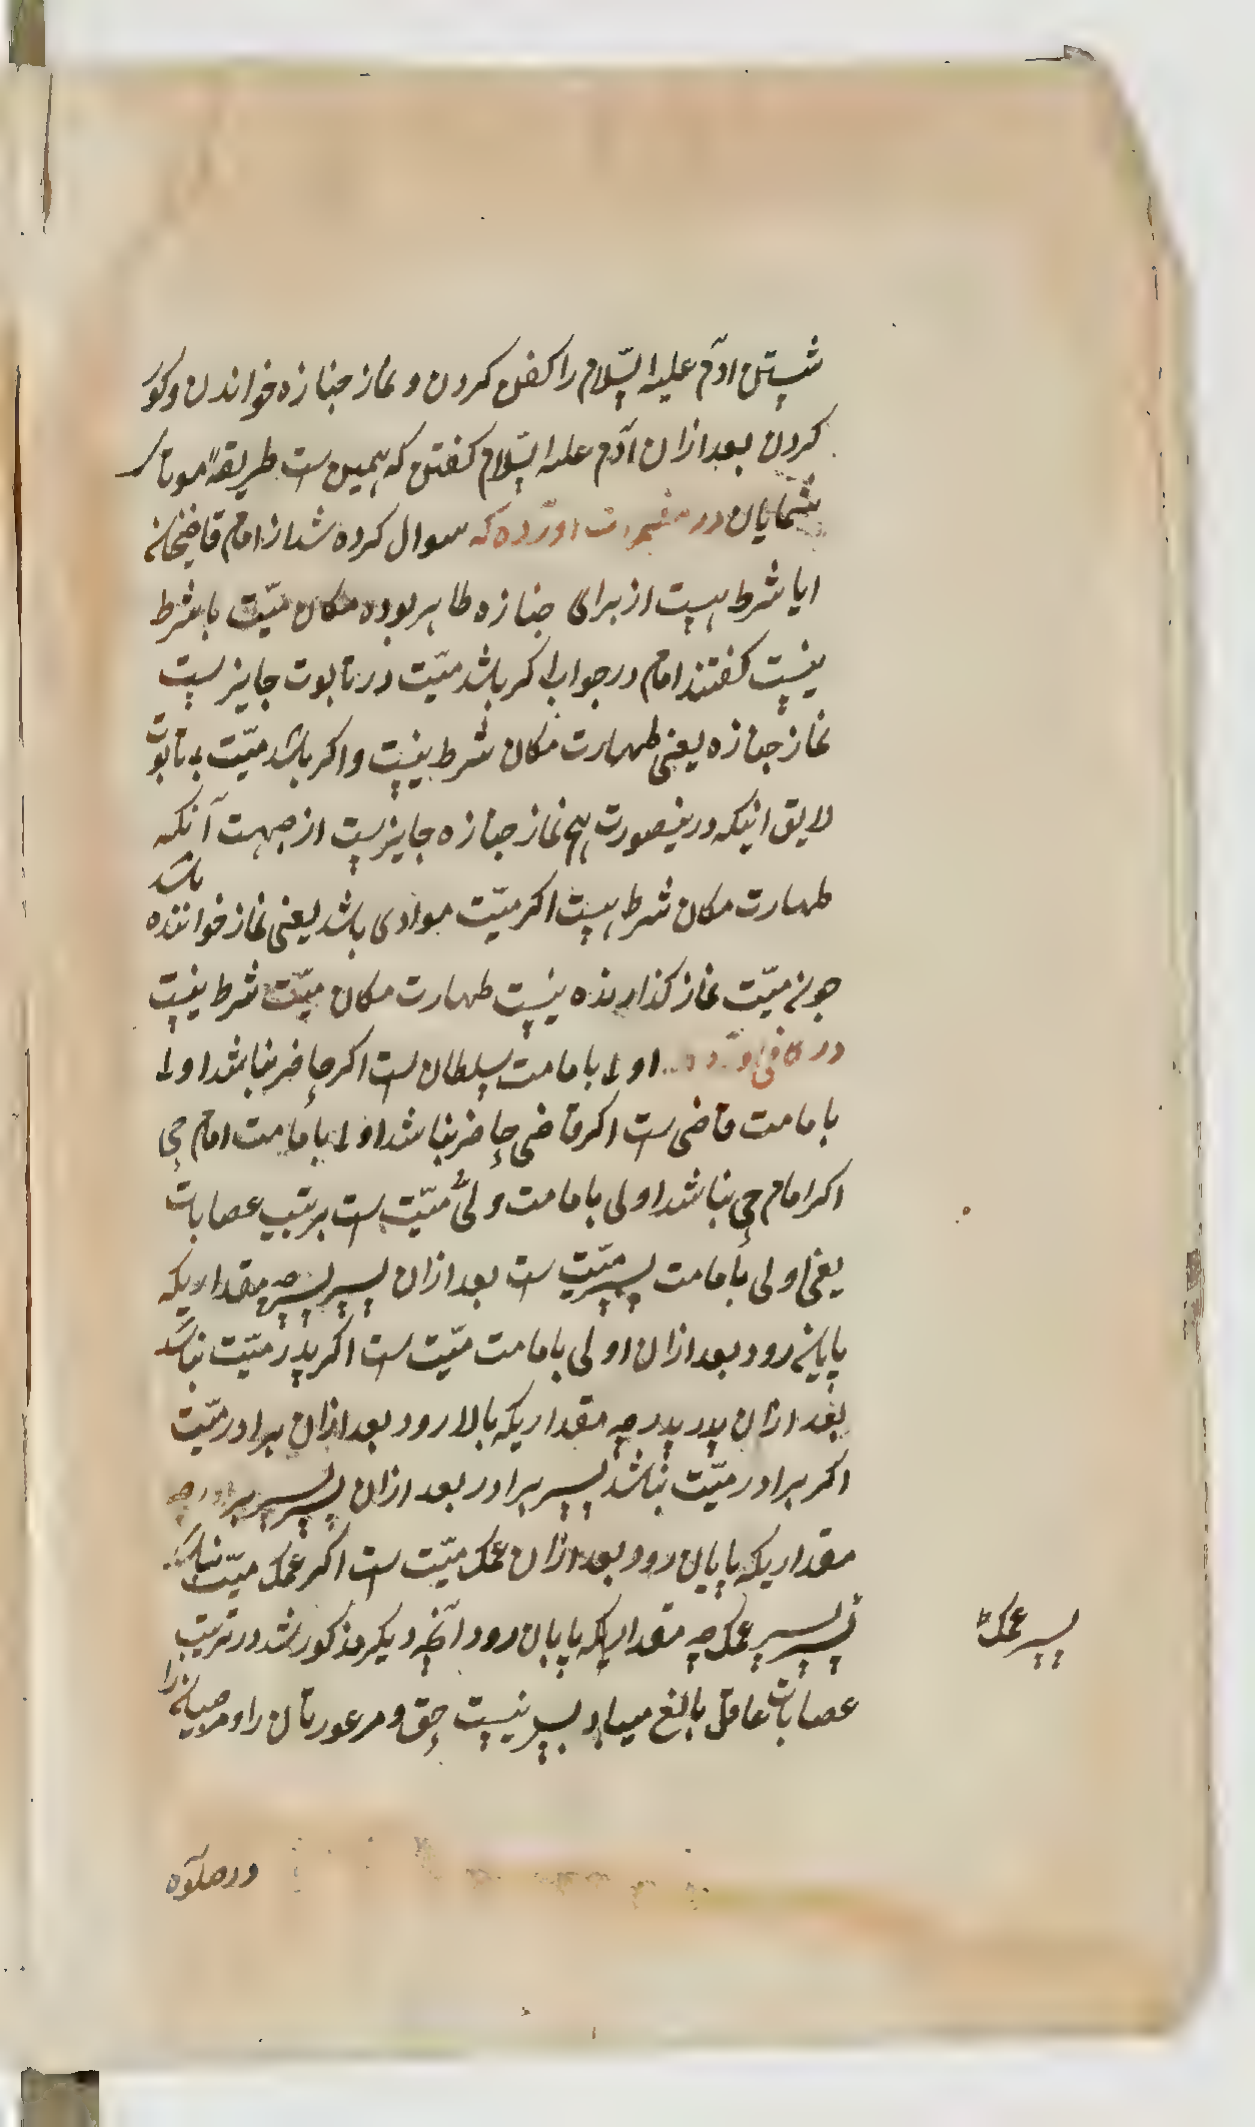 شستن ادم علیه السّلام را کفن کردن و نماز جنازه خواندن و کور
کردن بعد ازان آدم علیه السّلام کفتن که همین ست طریقهٔ موتا
شمایان در مضمرات اورده که سوال کرده شد از امام قاضیخان
ایا شرط هست از برای جنازه طاهر بوده مکان میّت یا شرط
نیست کفتند امام در جواب اکر باشد میّت در تابوت جایزست
نماز جنازه یعنی طهارت مکان شرط نیست و اکر باشد میّت بی تابوت
لایق اینکه درینصورت هم نماز جنازه جایزست از جهت آنکه
طهارت مکان شرط هست اکر میّت مودی باشد یعنی نماز خواننده باشد
چون میّت نماز کذارنده نیست طهارت مکان میّت شرط نیست
در کافی اورده اولی بامامت سلطان ست اکر حاضر نباشد اولی
بامامت قاضی ست اکر قاضی حاضر نباشد اولی بامامت امام حی
اکر امام حی نباشد اولی بامامت ولیّ میّت ست برتیب عصابات
یعنی اولی بامامت پسر میّت ست بعد ازان پسر پسر هر مقداریکه
پایان رود بعد ازان اولی بامامت میّت ست اکر پدر میّت نباشد
بعد ازان پدر پدر هر مقداریکه بالا رود بعد ازان برادر میّت
اکر برادر میّت نباشد پسر برادر بعد ازان پسر پسر برادر هر
مقداریکه پایان رود بعد ازان عمک میّت ست اکر عمک میّت نباشد
پسر پسر عمک هر مقداریکه پایان رود آنچه دیکر مذکور شد در ترتیب
پسر عمک
عصابات عاقل بالغ میباید پس نیست حق و مر عورتان را و مر صبیان را
در صلوة